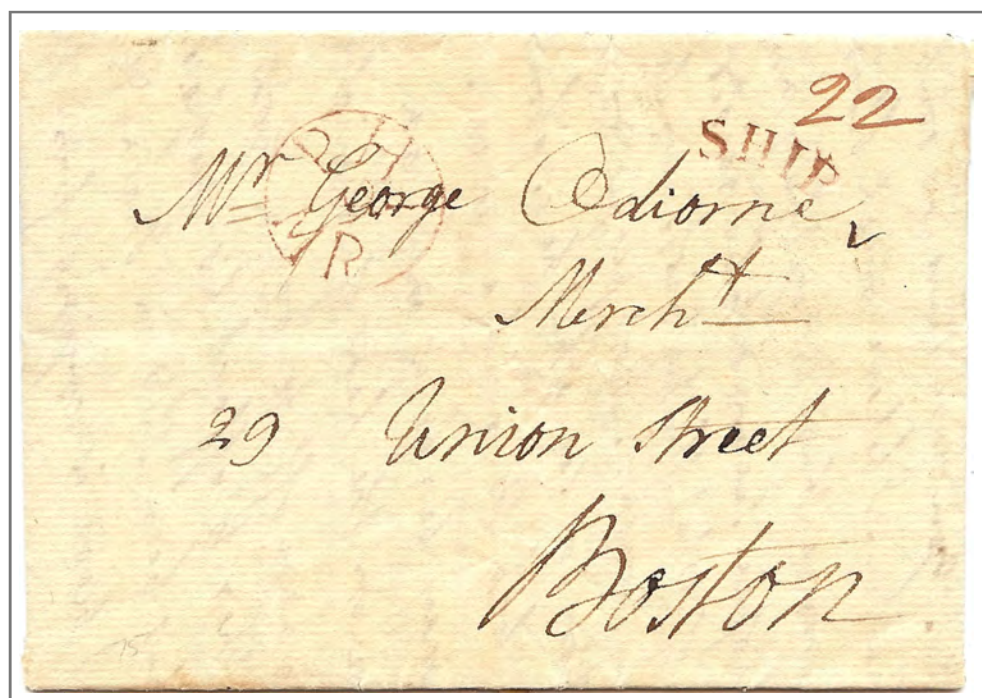 22
SHIP
Mr George Odiorne
Mercht
29 Union Street
Boston
R
15